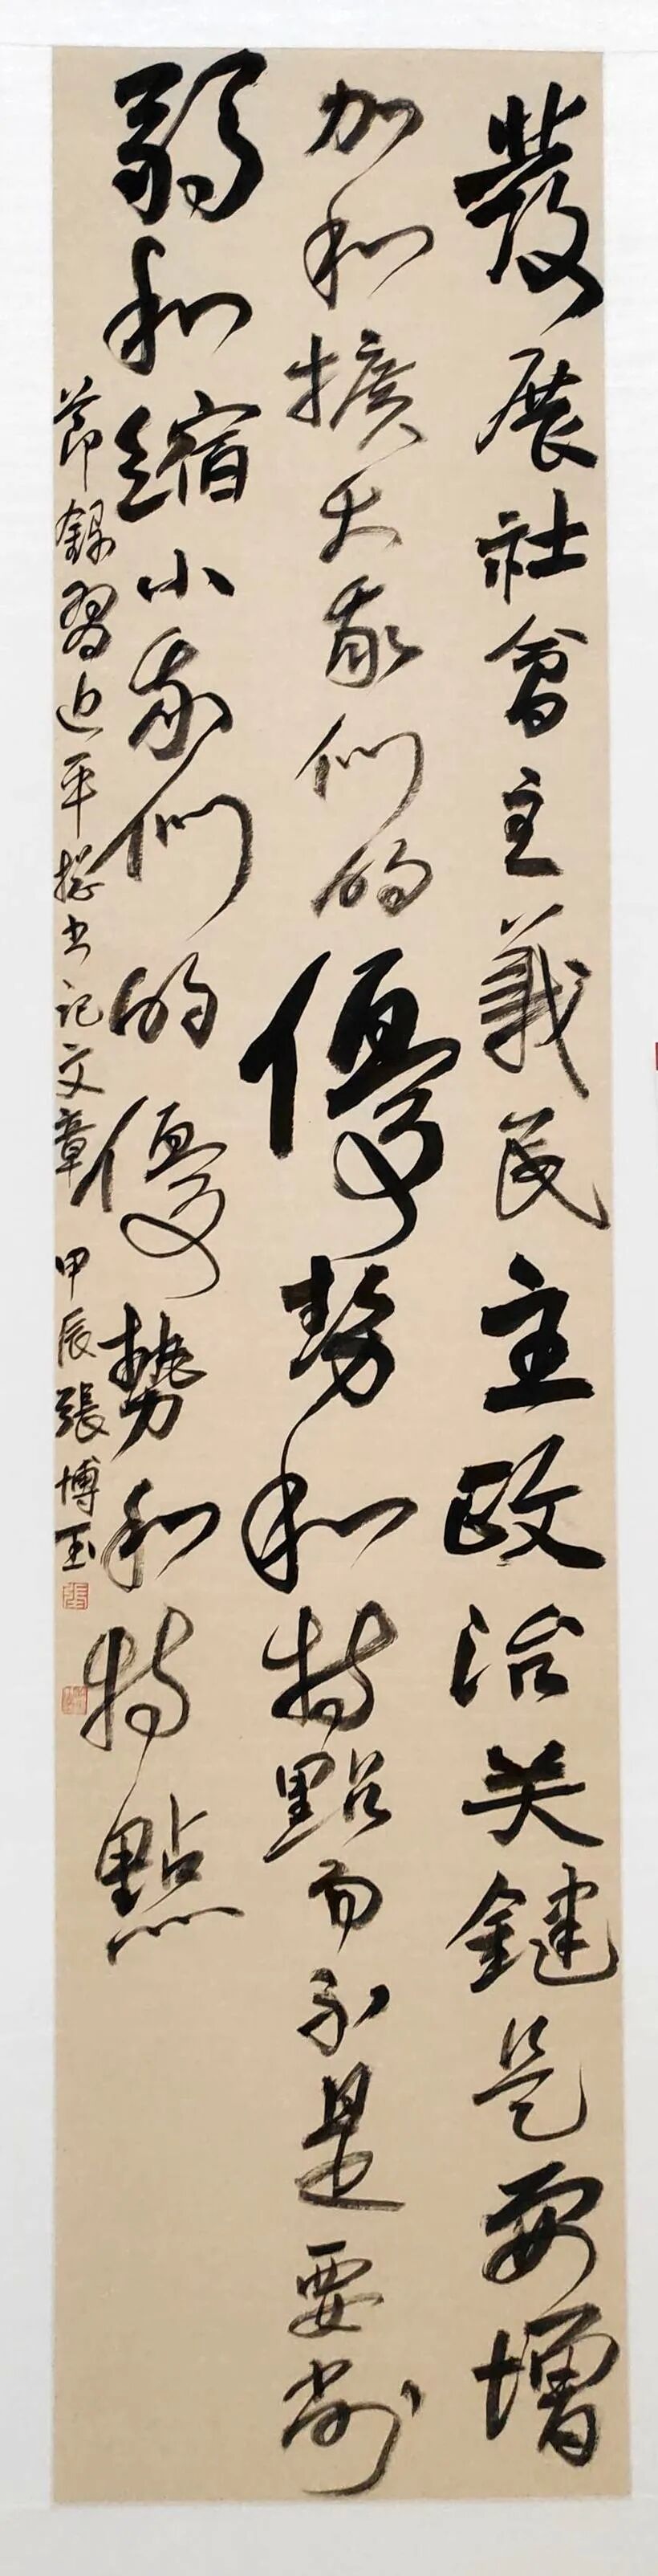 發展社會主義民主政治关鍵是要增
加和擴大我們的優势和特點而不是要削
弱和縮小我們的優勢和特點
節録習近平總书记文章 甲辰張博玉